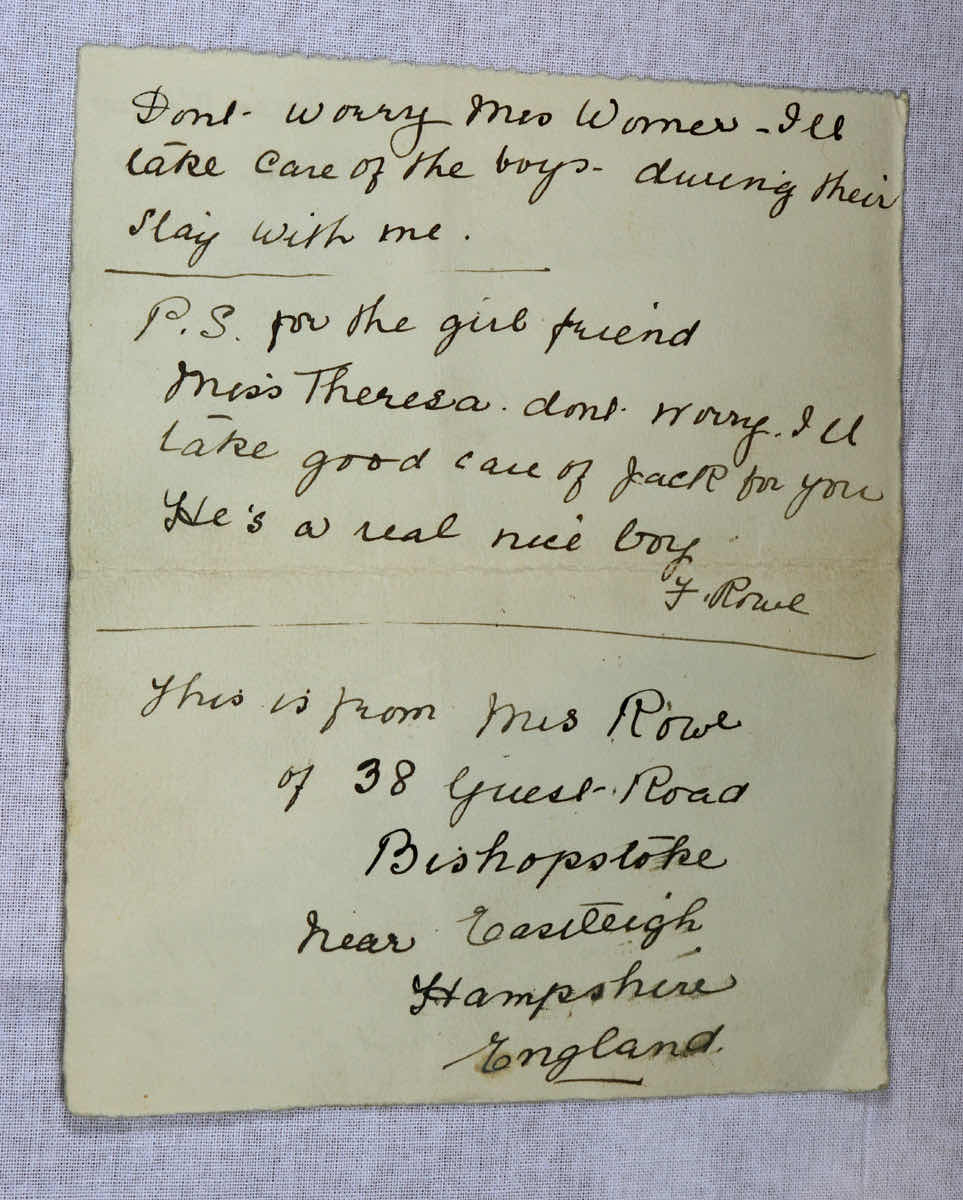 Dont- worry Mrs Worner - I'll
take care of the boys- during their
stay with me.
P.S. for the girl friend
Miss Theresa. dont. worry. I'll
take good care of Jack for you
He's a real nice boy.
F. Rowe
This is from Mrs Rowe
of 38 Guest- Road
Bishopstoke
Near Eastleigh
Hampshire
England.